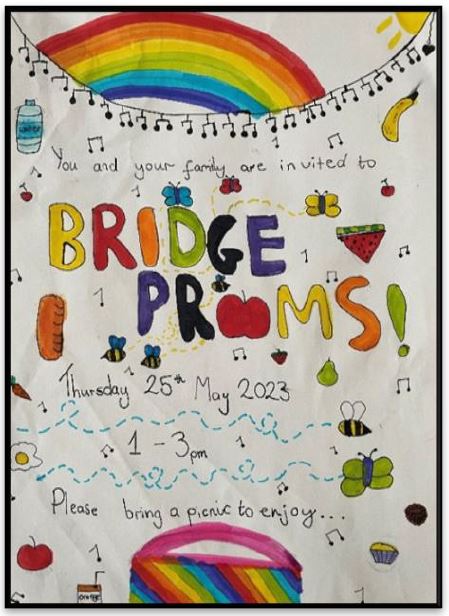 water
You and your family are invited to
BRIDGE
PROMS!
Thursday 25th May 2023
1 - 3pm
Please bring a picnic to enjoy...
orange